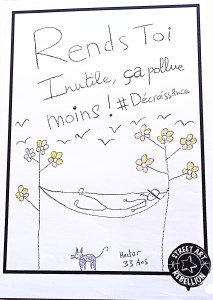 Rends Toi
Inutile, ça pollue
moins ! #Décroissance
Hector
33 Ans
STREET ART
REBELLION